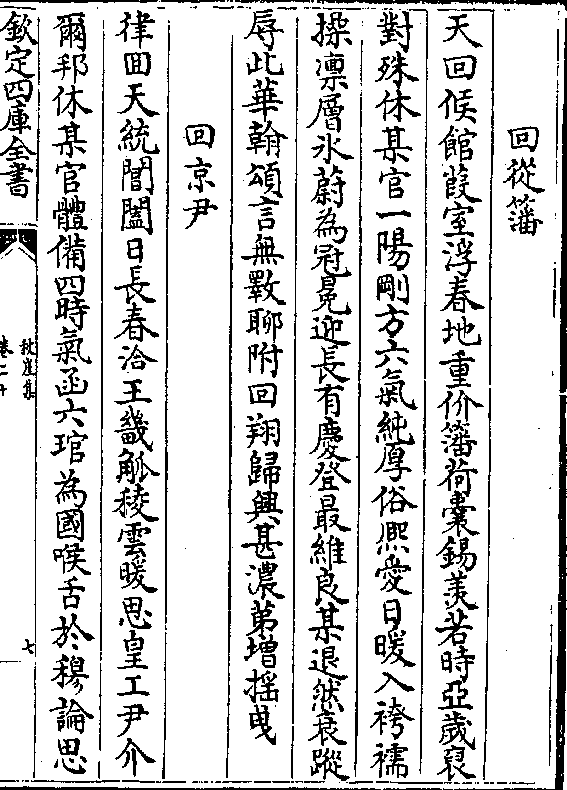 回從籓
天回候館葭室浮春地重价籓荷橐錫羨若時亞歲裒
對殊休某官一陽剛方六氣純厚俗熈愛日暖入袴襦
操凛層氷蔚為冠冕迎長有慶登最維良某退然衰蹤
辱此華翰頌言無斁聊附回翔歸興甚濃第增揺曵
回京尹
律回天統閶闔日長春洽王畿觚稜雲暖思皇工尹介
爾邦休某官體備四時氣函六琯為國喉舌於穆論思
欽定四庫全書
秋崖集
卷二十
七